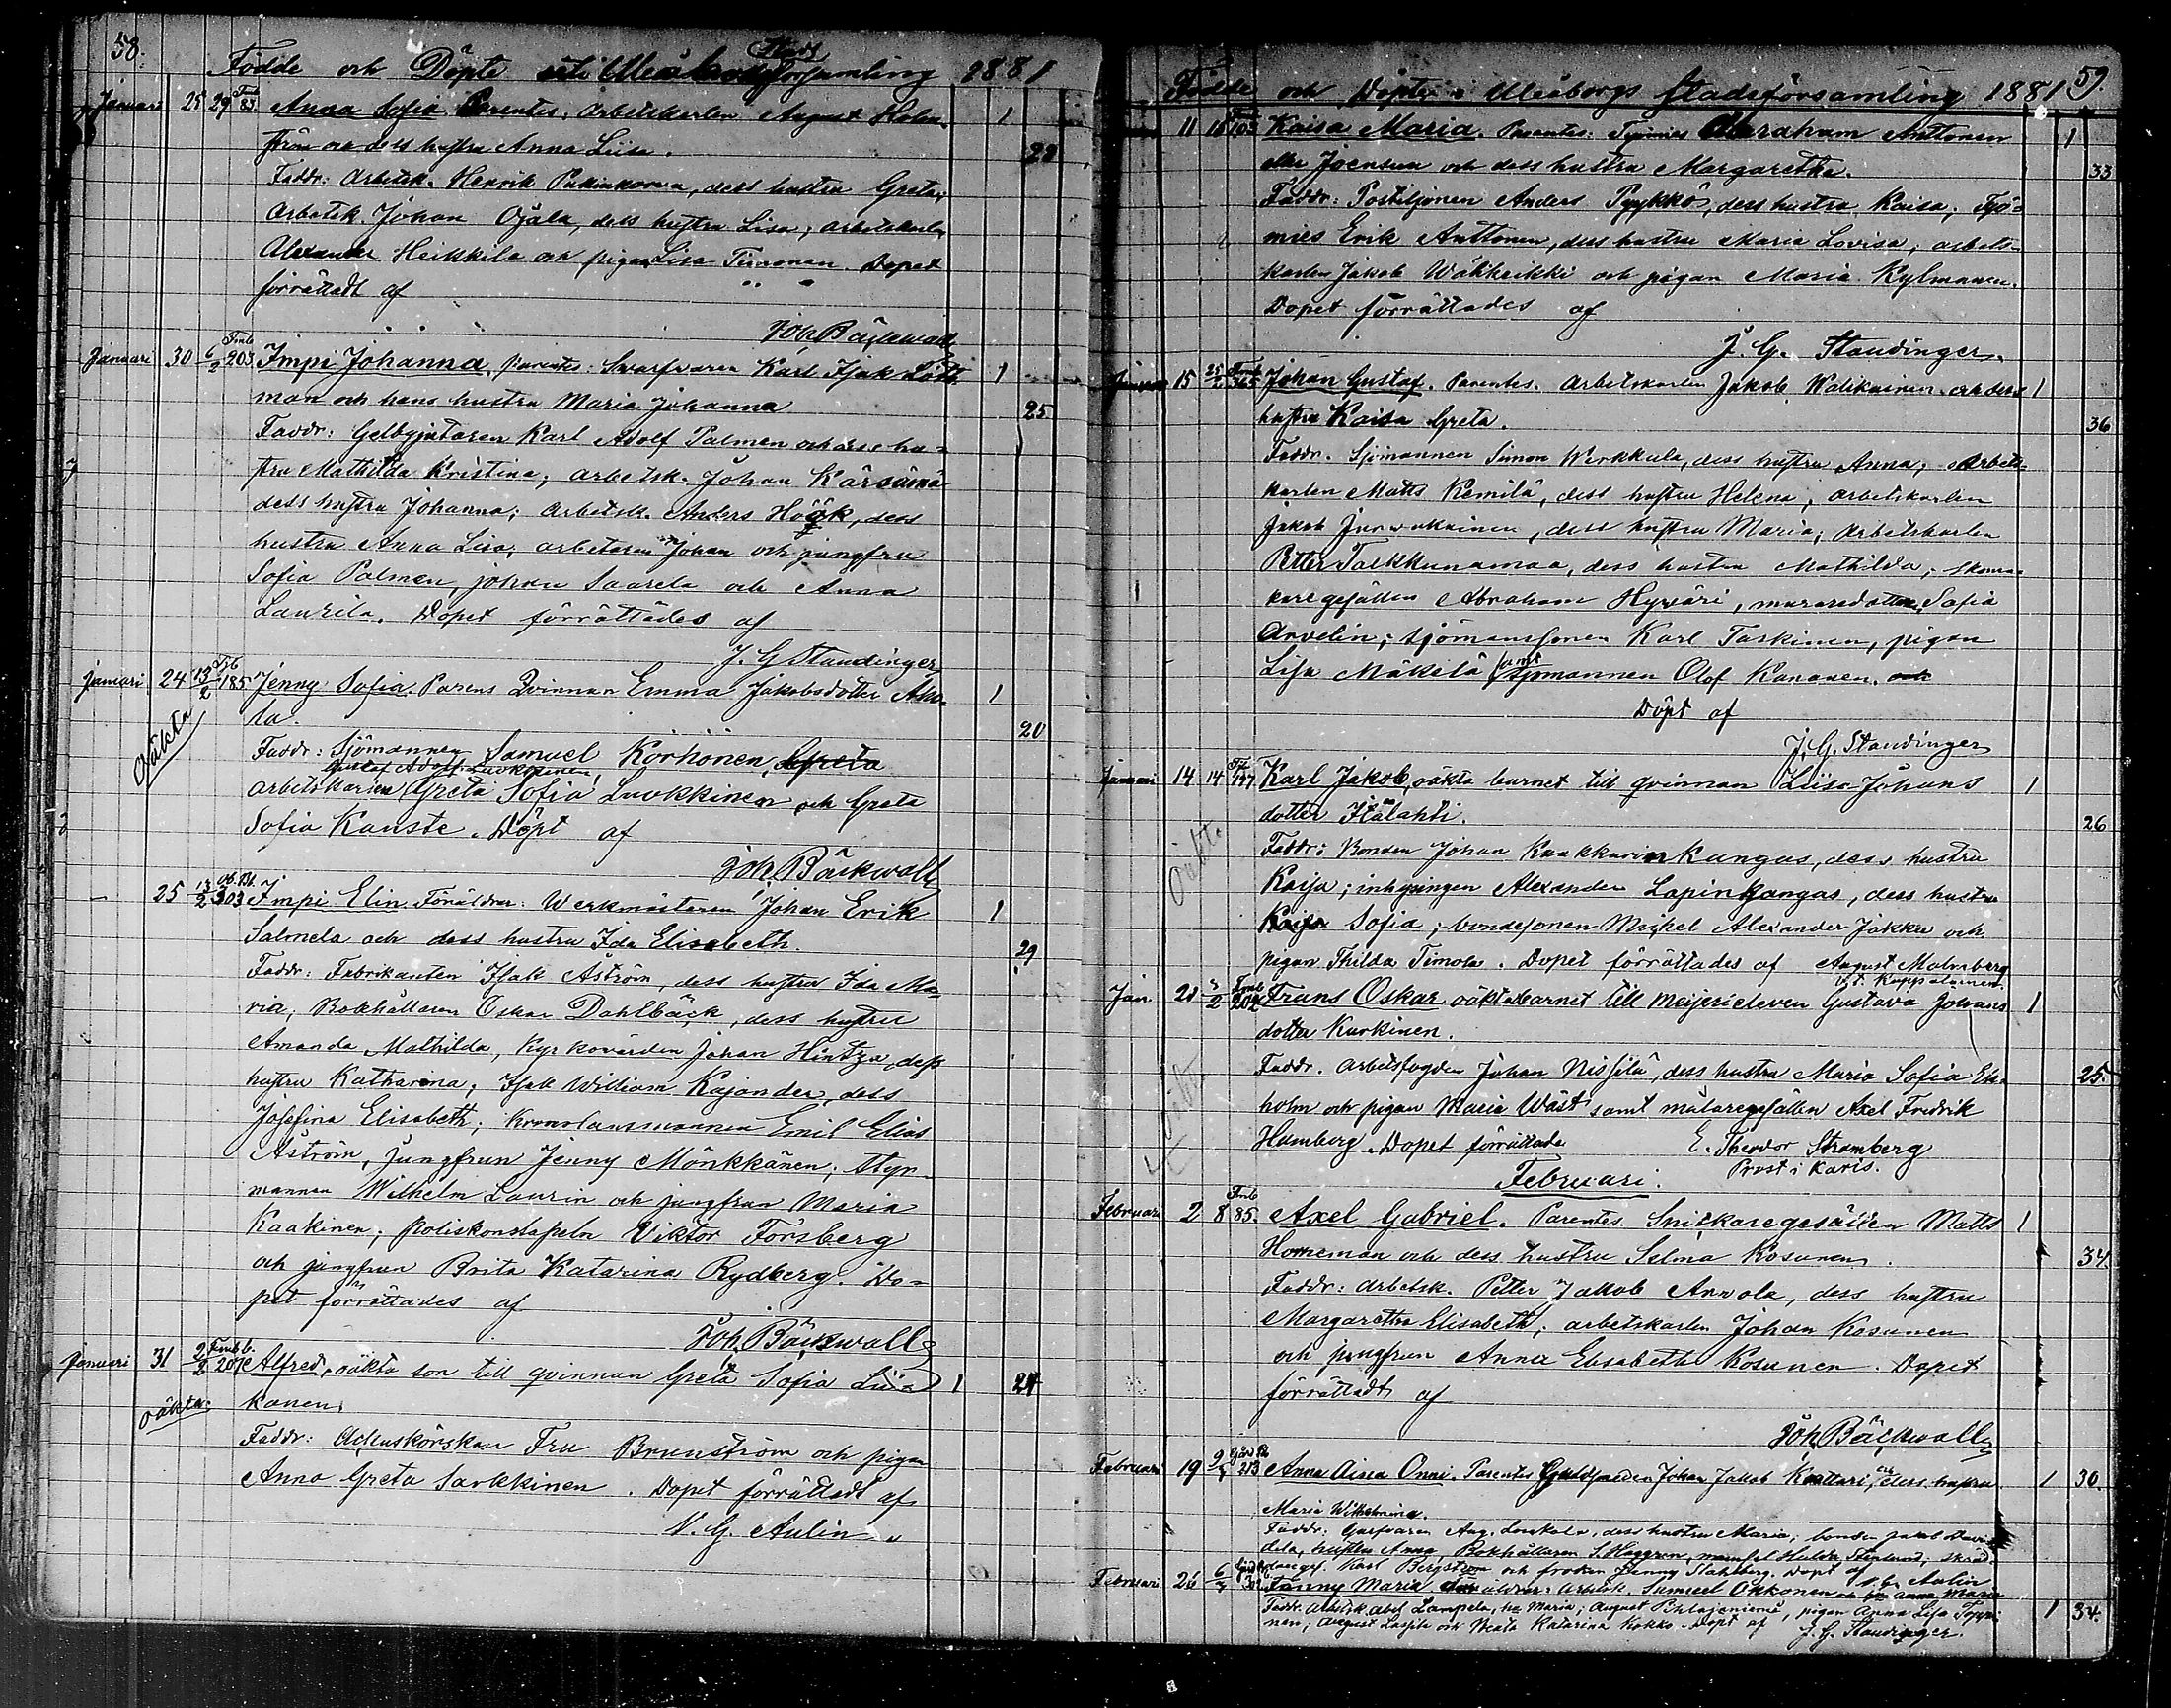 58.
Födde och Döpte uti Uleåborgs Stads församling 1881
Januari 25 29 Fmb 83. Anna Sofia Parentes: Arbetskarlen August Holm- 1
ström och dess hustru Anna Liisa. 28
Faddr: Arbetsk. Henrik Pukinkorva, dess hustru Greta;
Arbetsk. Johan Ojala, dess hustru Lisa; arbetskarlen
Alexander Heikkilä och pigan Lisa Timonen. Dopet
förrättadt af
Joh Bäckwall
Januari 30 6/2 Fmb 203 Impi Johanna. Parentes: Svarfvaren Karl Isak Lått- 1
man och hans hustru Maria Johanna 25
Faddr: Gelbgjutaren Karl Adolf Palmen och dess hu-
stru Mathilda Kristina; arbetsk. Johan Kärsämä
dess hustru Johanna; Arbetsk. Anders Höök, dess
hustru Anna Lisa; arbetaren Johan och jungfru
Sofia Palmen, Johan Saarela och Anna
Laurila. Dopet förrättades af
J. G. Staudinger
Januari 24 13/2 185 Jenny Sofia. Parens Qvinnan Emma Jakobsdotter Aho- 1
la. 20
Oäkta
Faddr: Sjömannen Samuel Korhonen, Greta
Gustaf Adolf Luokkinen
arbetskarlen Greta Sofia Luokkinen och Greta
Sofia Kanste. Döpt af
Joh. Bäckwall
— 25 13/2 303 Impi Elin. Föräldrar: Werkmästaren Johan Erik 1
Salmela och dess hustru Ida Elisabeth. 29
Faddr: Fabrikanten Isak Åström, dess hustru Ida Ma-
ria; Bokhållaren Oskar Dahlbäck, dess hustru
Amanda Mathilda, Kyrkovärden Johan Hintza, dess
hustru Katharina; Isak William Kajander, dess
Josefina Elisabeth; Kronolänsmannen Emil Elias
Åström, jungfrun Jenny Mönkkänen; styr-
mannen Wilhelm Laurin och jungfrun Maria
Kaakinen; poliskonstapeln Viktor Forsberg
och jungfrun Brita Katarina Rydberg. Do-
pet förrättades af
Joh. Bäckwall
Januari 31 2/2 Fmb 207 Alfred, oäkta son till qvinnan Greta Sofia Liia- 1 24
oäkta. kanen.
Faddr: Fru Brunström och pigan
Anna Greta Sarkkinen. Dopet förrättadt af
N. G. Aulin.
Födde och Döpte i Uleåborgs stadsförsamling 1881 59.
11 16 103 Kaisa Maria. Parentes: Työmies Abraham Anttonen 1
eller Joensuu och dess hustru Margaretha. 33
Faddr: Postiljonen Anders Pyykkö, dess hustru Kaisa; Työ-
mies Erik Anttonen, dess hustru Maria Lovisa; arbets-
karlen Jakob Wähkeikki och pigan Maria Kylmanen.
Dopet förrättades af
J. G. Staudinger.
Januari 15 25/2 Fmb 365 Johan Gustaf. Parentes. Arbetskarlen Jakob Walikainen och dess 1
hustru Kaisa Greta. 36
Faddr. Sjömannen Simon Werkkula, dess hustru Anna; Arbets-
karlen Matts Kemilä, dess hustru Helena; arbetskarlen
Jakob Jurvakainen, dess hustru Maria; Arbetskarlen
Petter Tarkkunamaa, dess hustru Mathilda; skoma-
karegesällen Abraham Hyväri, muraredottern Sofia
Arvelin; sjömanssonen Karl Taskinen, pigan
Lisa Mäkelä samt sjömannen Olof Kananen. och
Döpt af
J. G. Staudinger
Januari 14 14 Karl Jakob, oäkta barnet till qvinnan Liisa Johans 1
dotter Itälahti. 26
Oäkt.
Faddr: Bonden Johan Kaakkurinkangas, dess hustru
Kaisa; inhysingen Alexander Lapinkangas, dess hustru
Kaisa Sofia; bondesonen Michel Alexander Jakku och
pigan Thilda Timola. Dopet förrättades af August Malmberg
V.t. Kappalainen.
Jan 21 Fmb 202 Frans Oskar oäkta barnet till Meijerieleven Gustava Johans 1
dotter Kurkinen.
Faddr. Arbetsfogden Johan Nissilä, dess hustru Maria Sofia Ek- 25.
holm och pigan Maria Wäst samt målaregesällen Axel Fredrik
Hamberg. Dopet förrättade E. Theodor Strömberg
Prost i Karis.
Februari.
Februari 2 8 Fmb 85. Axel Gabriel. Parentes. Snickaregesällen Matts 1
Horneman och dess hustru Selma Kosunen. 34.
Faddr: Arbetsk. Petter Jakob Arvola, dess hustru
Margaretha Elisabeth; arbetskarlen Johan Kosunen
och jungfrun Anna Elisabeth Kosunen. Dopet
förrättadt af
Joh. Bäckwall
Februari 19 213 Anna Aina Onni. Parentes Johan Jakob Knuttari, och dess hustru 1 30.
Maria Wilhelmina.
Faddr: Garfvaren Aug. Leskelä, dess hustru Maria; bonden Jakob Davi-
dela, hustru Anna; Bokhållaren S. Haggren, mamsel Hulda Stenlund; skräd-
daregs. Karl Bergström och fröken Jenny Ståhlberg. Döpt af N. G. Aulin
Februari 26 6/3 Fanny Maria. Föräldrar: Arbetsk. Samuel Okkonen och h. Anna Maria
Faddr. Arbetsk. Abel Lampela, h. Maria; August Pehlajaniemi, pigan Anna Lisa Toppi- 1 34.
nen; August Lassila och Beata Katarina Kokko. Döpt af J. G. Staudinger.